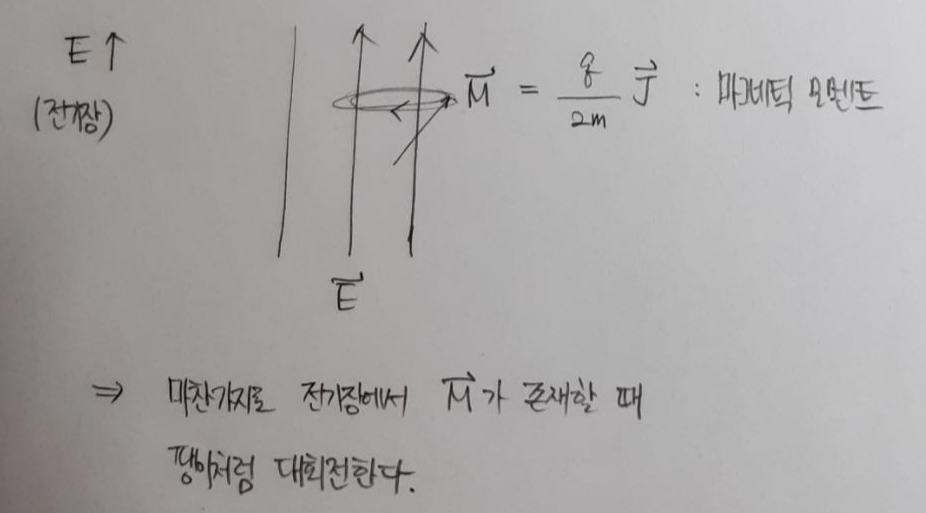 E ↑
(전기장)
M⃗ = q/2m J⃗ : 마그네틱 모멘트
E⃗
⇒ 마찬가지로 전기장에서 M⃗가 존재할 때
팽이처럼 대회전한다.